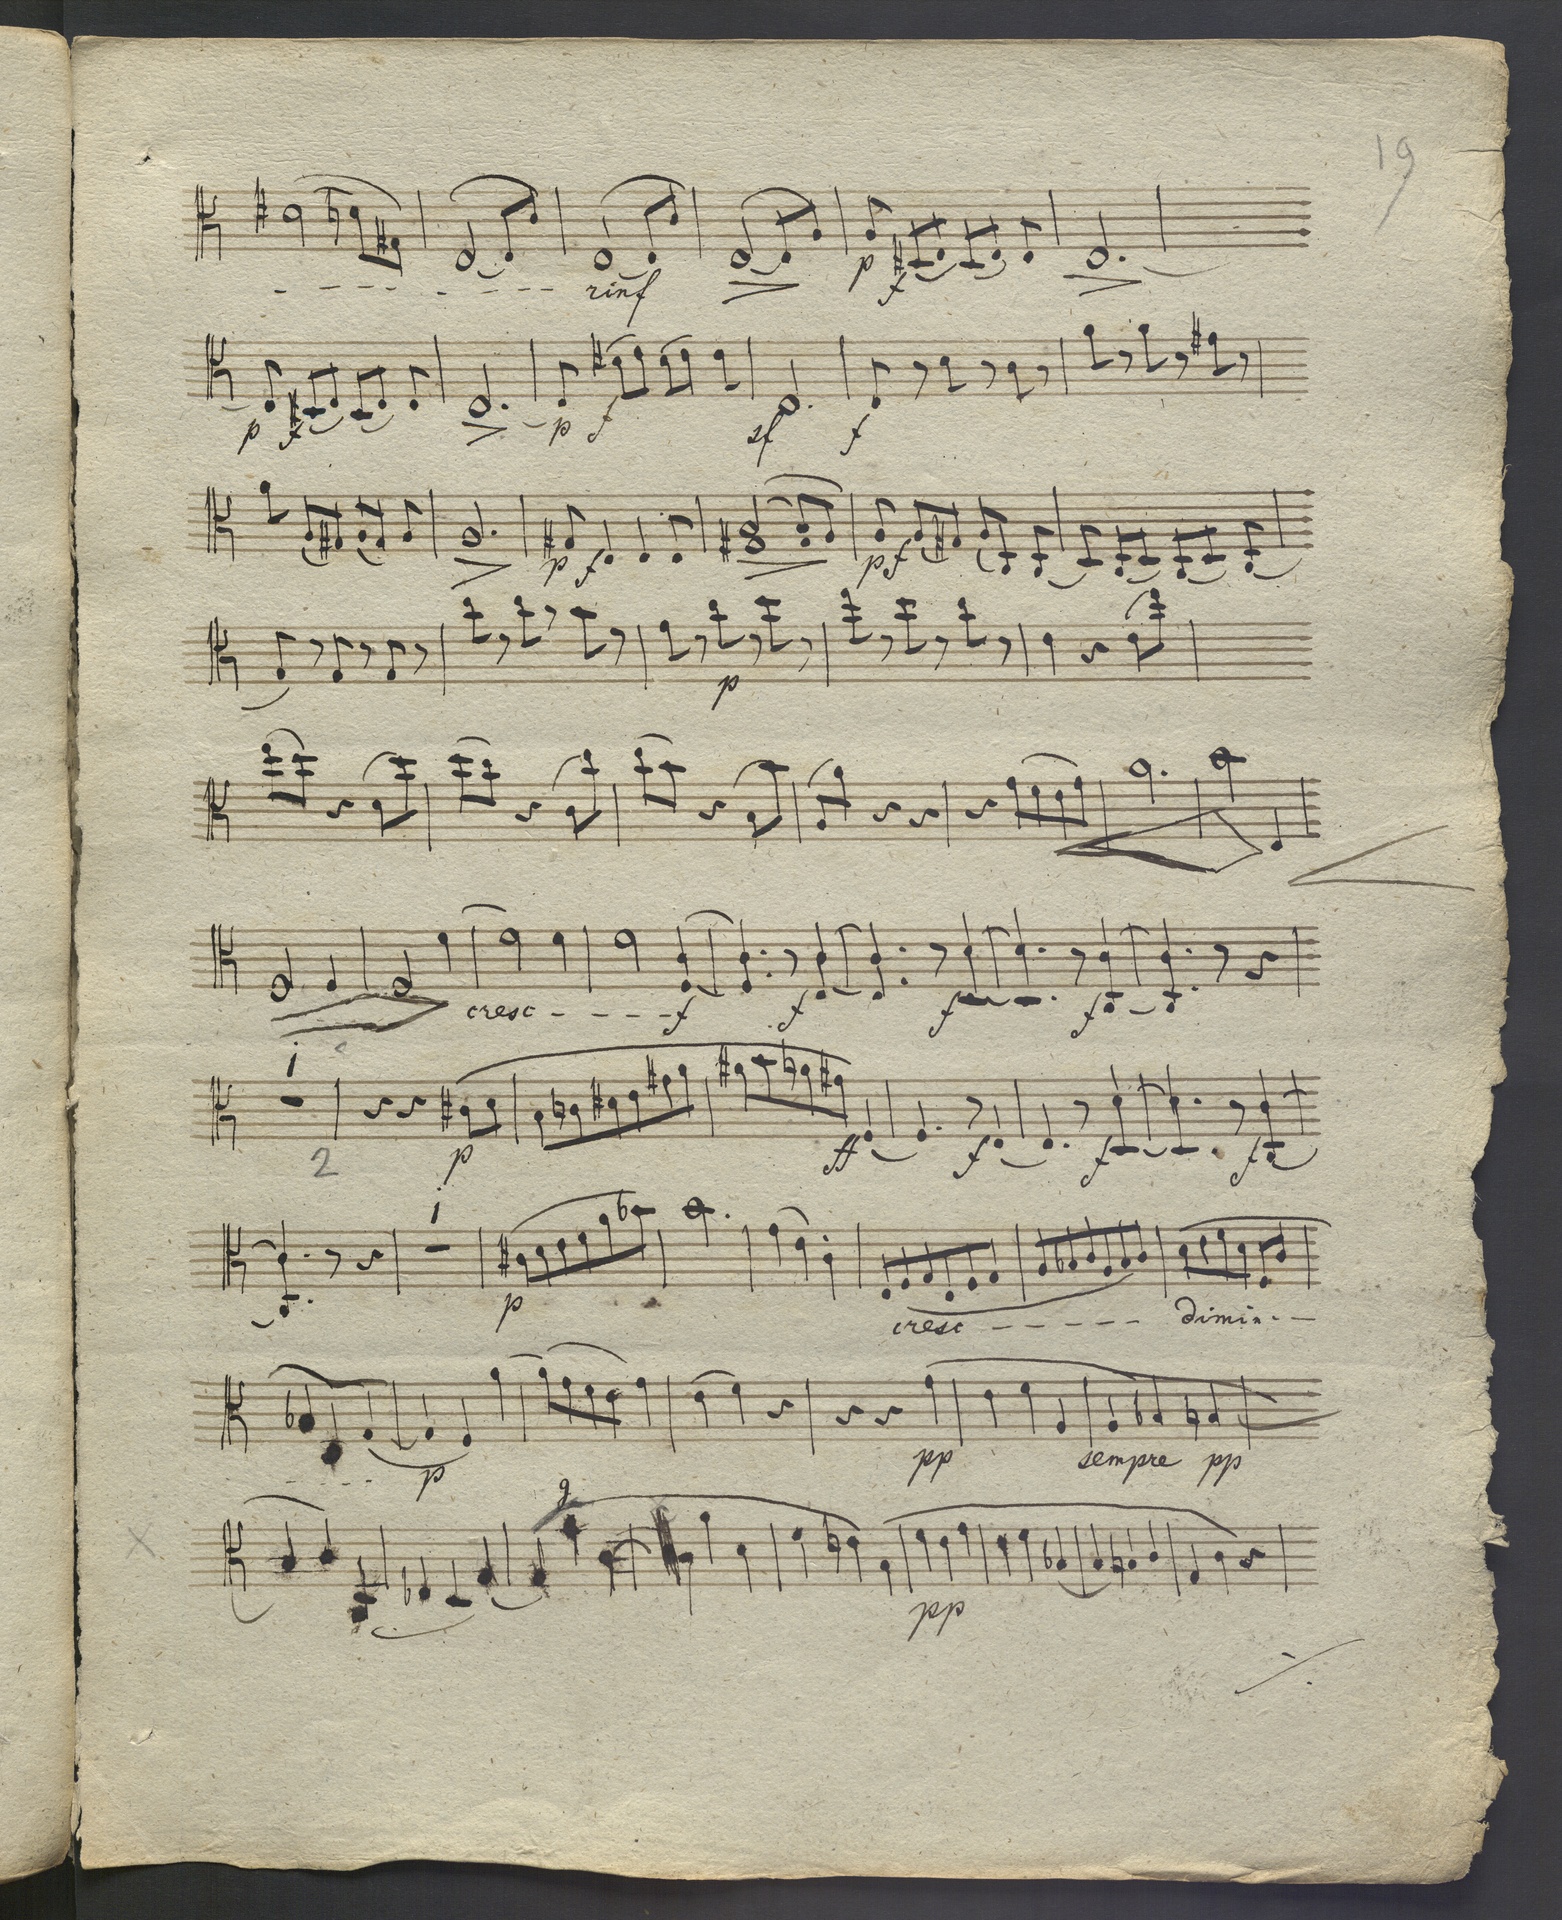 19
rinf p f
p f p f sf f
p f p f
p
cresc f f f f
1
2 p ff f f f
1
p cresc dimin
p pp sempre pp
g
pp